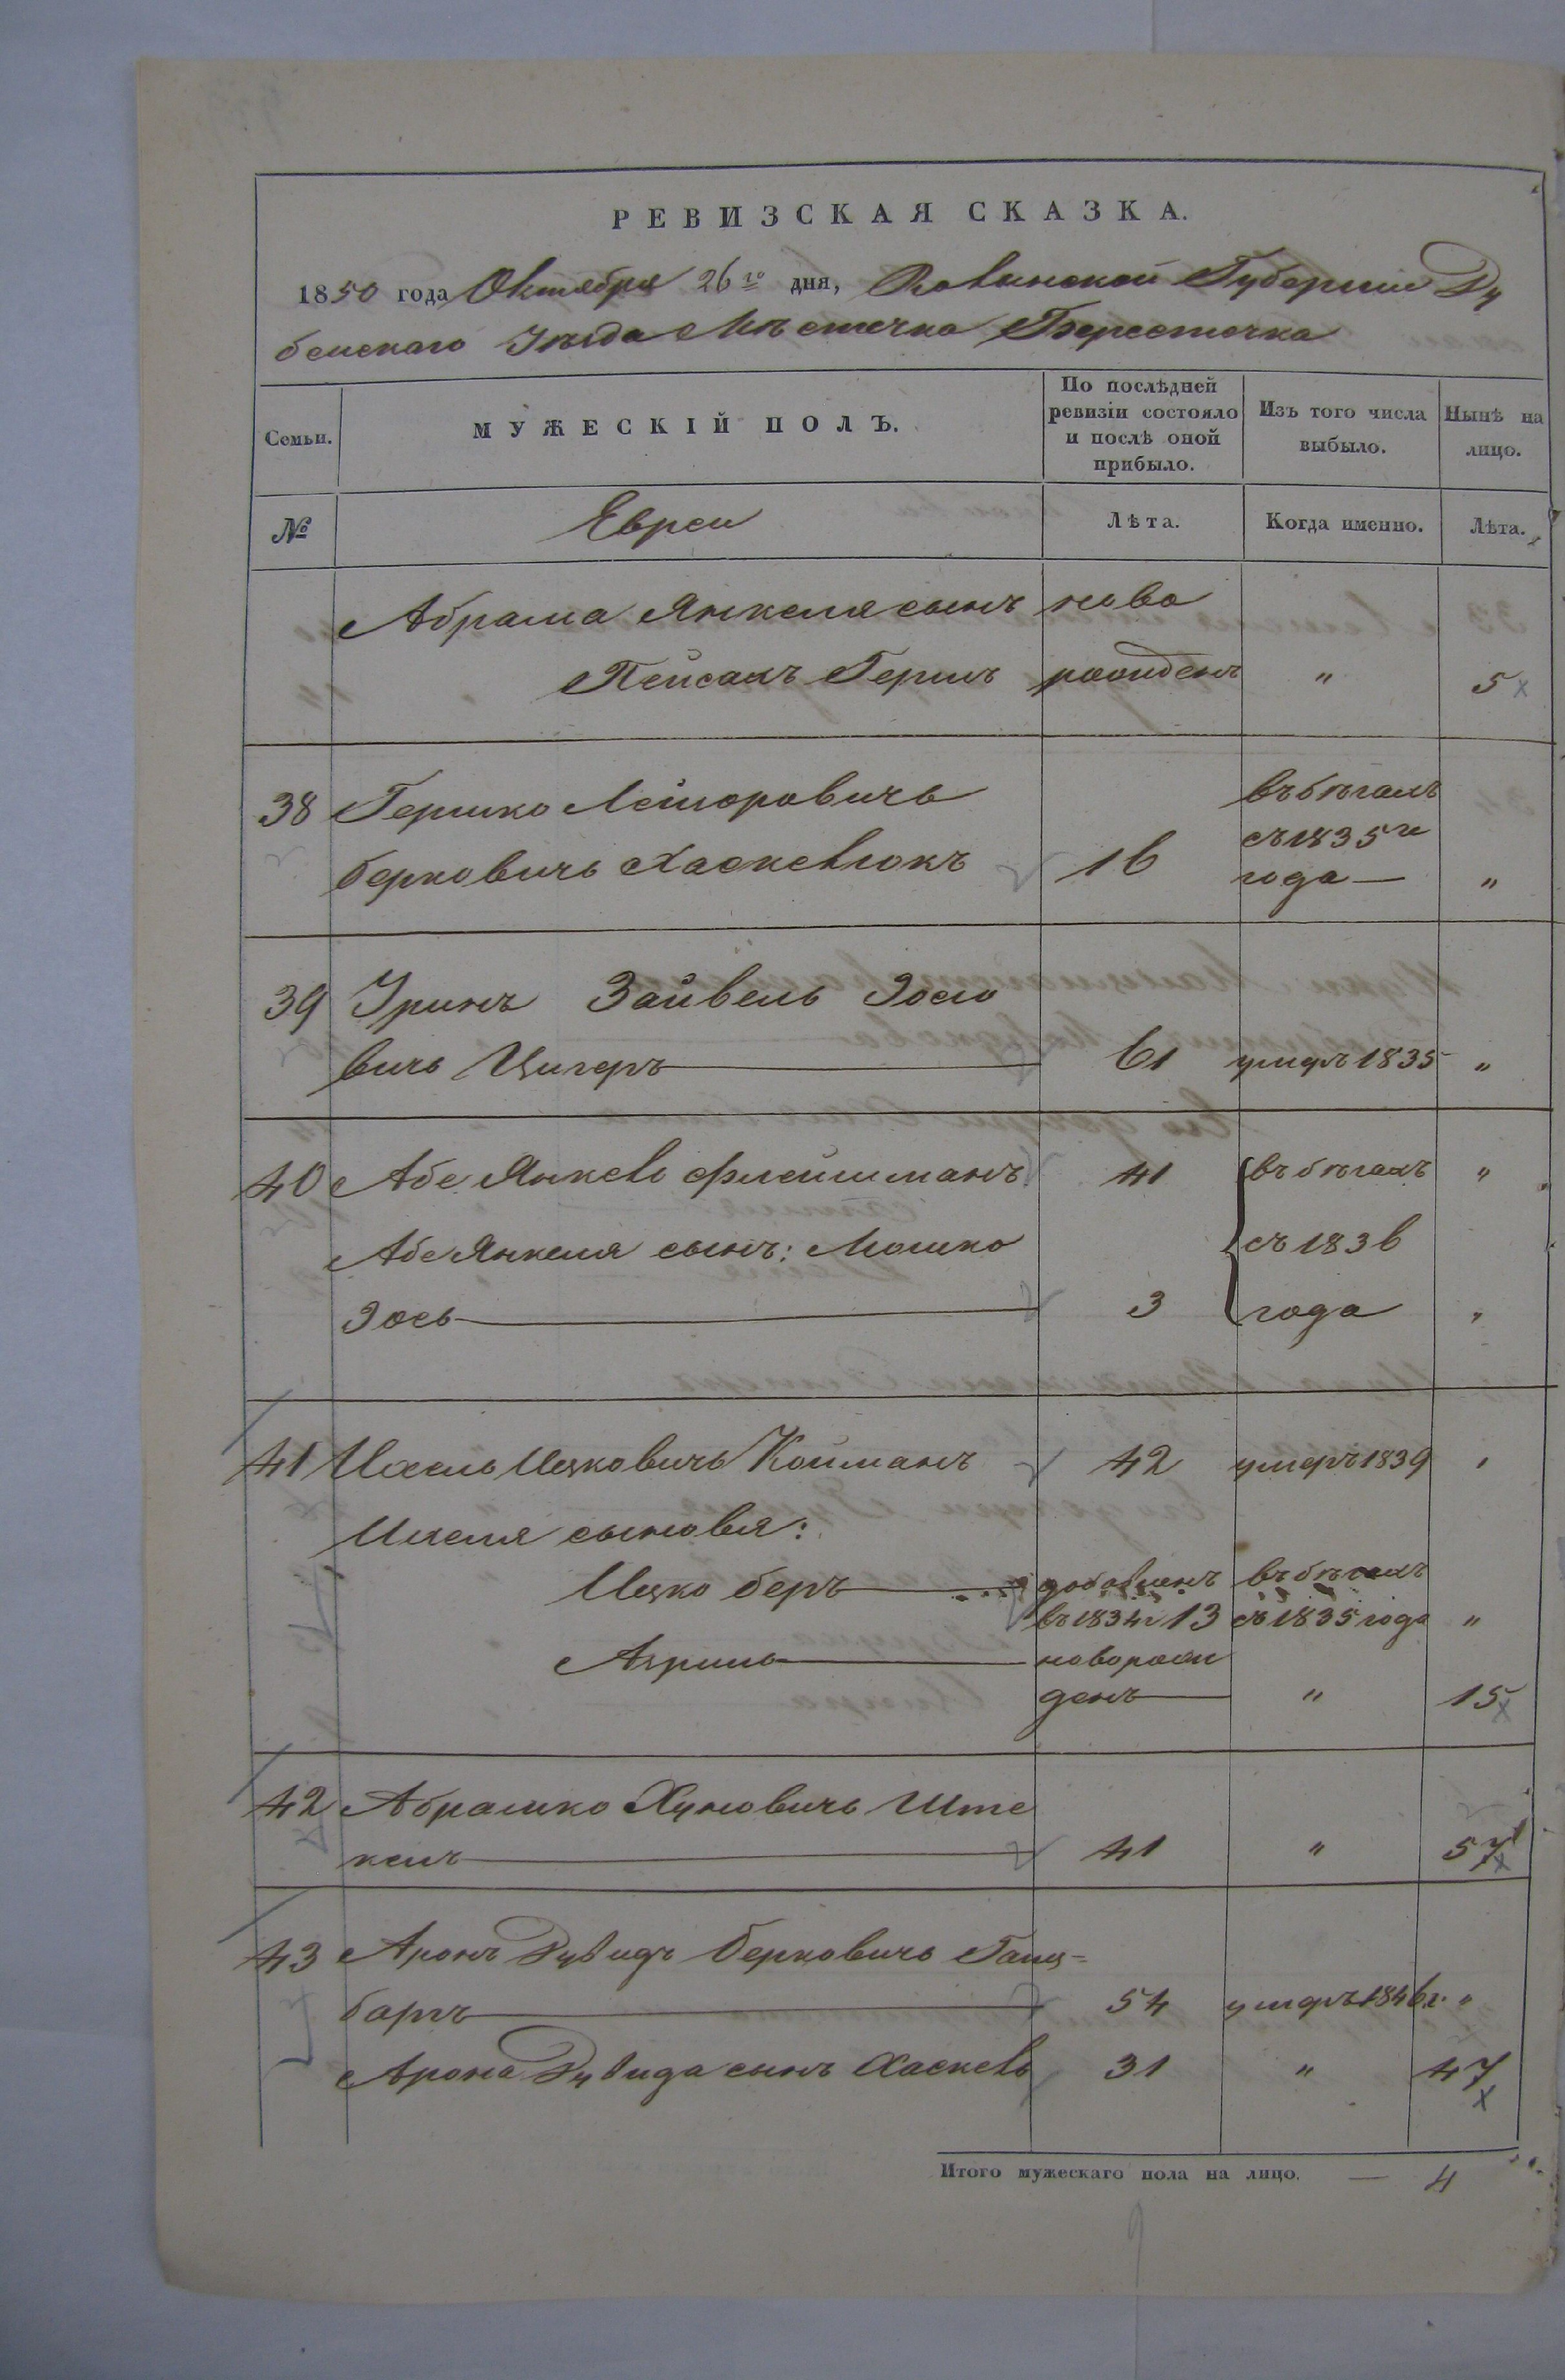 РЕВИЗСКАЯ СКАЗКА.
1850 года Октября 26го дня, Волынской Губернии Ду
бенскаго Уѣзда Мѣстечка Берестечка
Семьи.
МУЖЕСКІЙ ПОЛЪ.
По послѣдней ревизіи состояло и послѣ оной прибыло.
Изъ того числа выбыло.
Нынѣ на лицо.
№ Евреи Лѣта. Когда именно. Лѣта.
Абрама Янкеля сынъ ново
Пейсахъ Гершъ рожденъ " 5
38 Гершко Лейзоровичъ въ бѣгахъ
съ 1835 г
берковичъ Хаскелюкъ 16 года "
39 Зайвель Іосио
вичь Цигеръ 61 умеръ 1835 "
40 Абе Янкель Флейшманъ 41 въ бѣгахъ "
Абе Янкеля сынъ: Мошко съ 1836
Іось 3 года "
41 Ихель Ицковичь Койманъ 42 умеръ 1839 "
Ихеля сыновья:
Ицко беръ добавленъ въ бѣгахъ
въ 1834 г 13 съ 1835 года "
новорож
денъ " 15
42 Абрамко Хуновичь Ште
41 " 57
43 Аронъ Дувидъ Берковичь Ганц-
баргъ 54 умеръ 1846 г. "
Арона Дувида сынъ Хаскель 31 " 47
Итого мужескаго пола на лицо. — 4